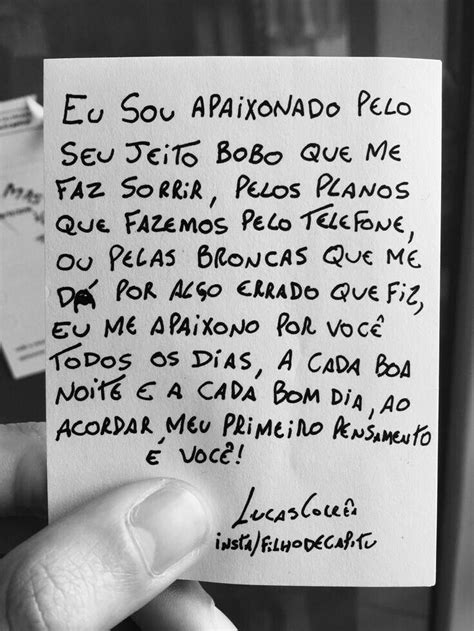 EU SOU APAIXONADO PELO
SEU JEITO BOBO QUE ME
FAZ SORRIR, PELOS PLANOS
QUE FAZEMOS PELO TELEFONE,
OU PELAS BRONCAS QUE ME
DÁ POR ALGO ERRADO QUE FIZ,
EU ME APAIXONO POR VOCÊ
TODOS OS DÍAS, A CADA BOA
NOITE E A CADA BOM DIA, AO
ACORDAR, MEU PRIMEIRO PENSAMENTO
É VOCÊ!
LUCAS CORRÊA
INSTA/FILHODECAPITU
MAS